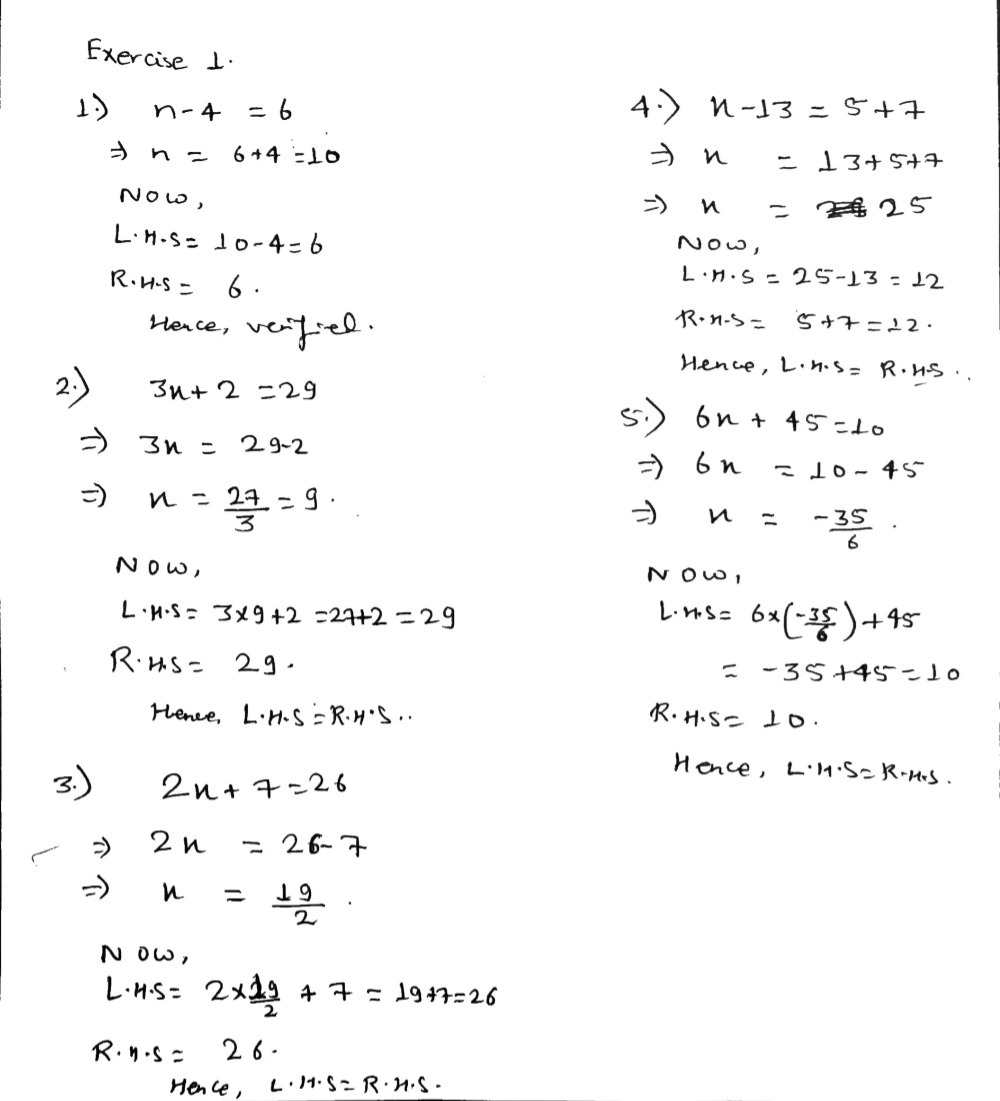 Exercise 1.
1.) n-4 = 6
⇒ n = 6+4 =10
Now,
L.H.S= 10-4=6
R.H.S= 6.
Hence, verified.
2.) 3n+2 =29
⇒ 3n = 29-2
⇒ n = 27/3 = 9.
Now,
L.H.S= 3×9+2 =27+2 =29
R.H.S= 29.
Hence, L.H.S=R.H.S..
3.) 2n+7=26
⇒ 2n = 26-7
⇒ n = 19/2.
Now,
L.H.S= 2×19/2 + 7 = 19+7=26
R.H.S= 26.
Hence, L.H.S=R.H.S.
4.) n-13 = 5+7
⇒ n = 13+5+7
⇒ n = 25
Now,
L.H.S = 25-13 = 12
R.H.S= 5+7=12.
Hence, L.H.S= R.H.S..
5.) 6n + 45=10
⇒ 6n = 10-45
⇒ n = -35/6.
Now,
L.H.S= 6×(-35/6)+45
= -35+45=10
R.H.S= 10.
Hence, L.H.S=R.H.S.